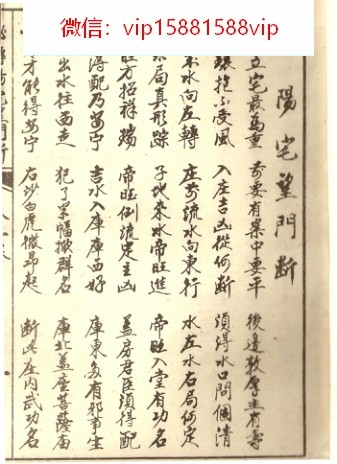 微信：vip15881588vip
陽宅望門斷
立宅最為重 前要有案中要平 後邊敦厚主有壽
環抱不受風 入庄吉凶從何斷 須得水口問個清
來水向左轉 庄前流水向東行 水左水右局何定
局真形踪 子地來水帝旺進 帝旺入堂有功名
旺方招祥瑞 帝旺倒流定主凶 蓋房君臣須得配
得配乃安宁 吉水入庫庫西好 庫東多有邪事生
出水往西走 犯了群名 庫北蓋座菩薩庙
才能得安宁 右沙白虎微昂起 斷此庄内武功名